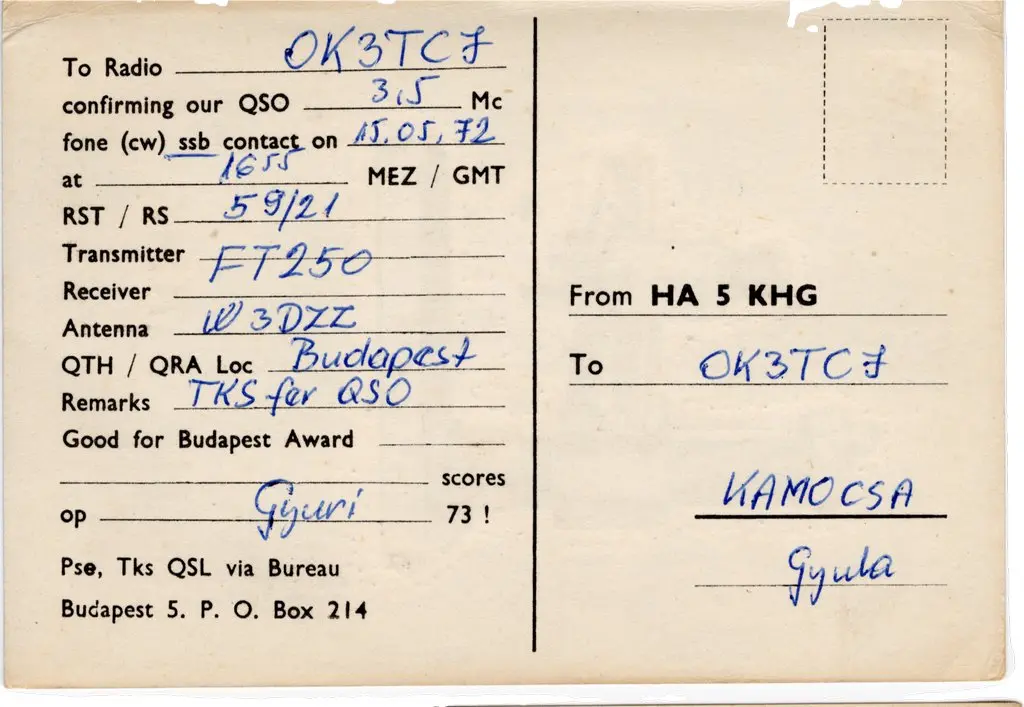 To Radio OK3TCJ
confirming our QSO 3,5 Mc
fone (cw) ssb contact on 15.05.72
at 1655 MEZ / GMT
RST / RS 59/21
Transmitter FT250
Receiver
Antenna W3DZZ
QTH / QRA Loc Budapest
Remarks TKS fer QSO
Good for Budapest Award
scores
op Gyuri 73 !
Pse, Tks QSL via Bureau
Budapest 5. P. O. Box 214
From HA 5 KHG
To OK3TCJ
KAMOCSA
Gyula